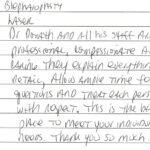 Blepharoplasty
Laser
Dr Donath and all his staff are
professional, compassionate and
caring. They explain everything
detail, allow ample time for
questions and treat each person
with respect. This is the best
place to meet your individual
needs. Thank you so much.